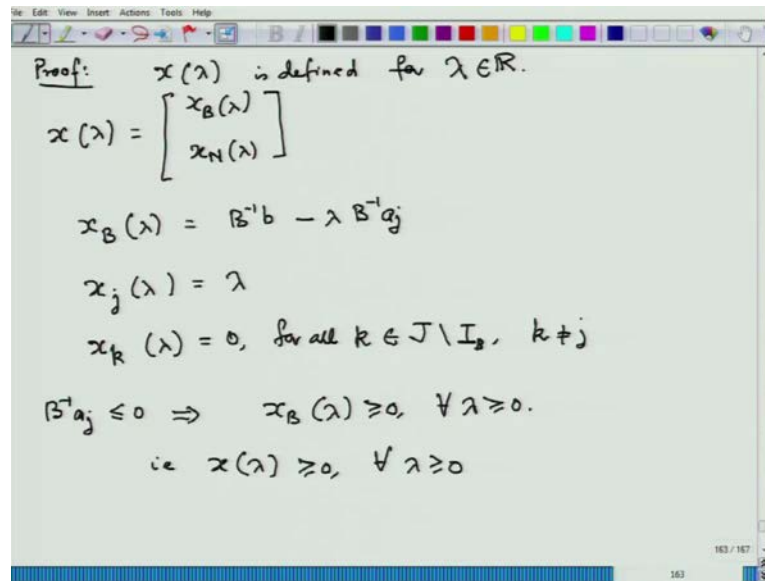 File Edit View Insert Actions Tools Help
Proof: x(λ) is defined for λ ∈ ℝ.
x(λ) = [ x_B(λ)
x_N(λ) ]
x_B(λ) = B⁻¹b − λ B⁻¹a_j
x_j(λ) = λ
x_k(λ) = 0, for all k ∈ J \ I_B, k ≠ j
B⁻¹a_j ≤ 0 ⇒ x_B(λ) ≥ 0, ∀ λ ≥ 0.
ie x(λ) ≥ 0, ∀ λ ≥ 0
163 / 167
163